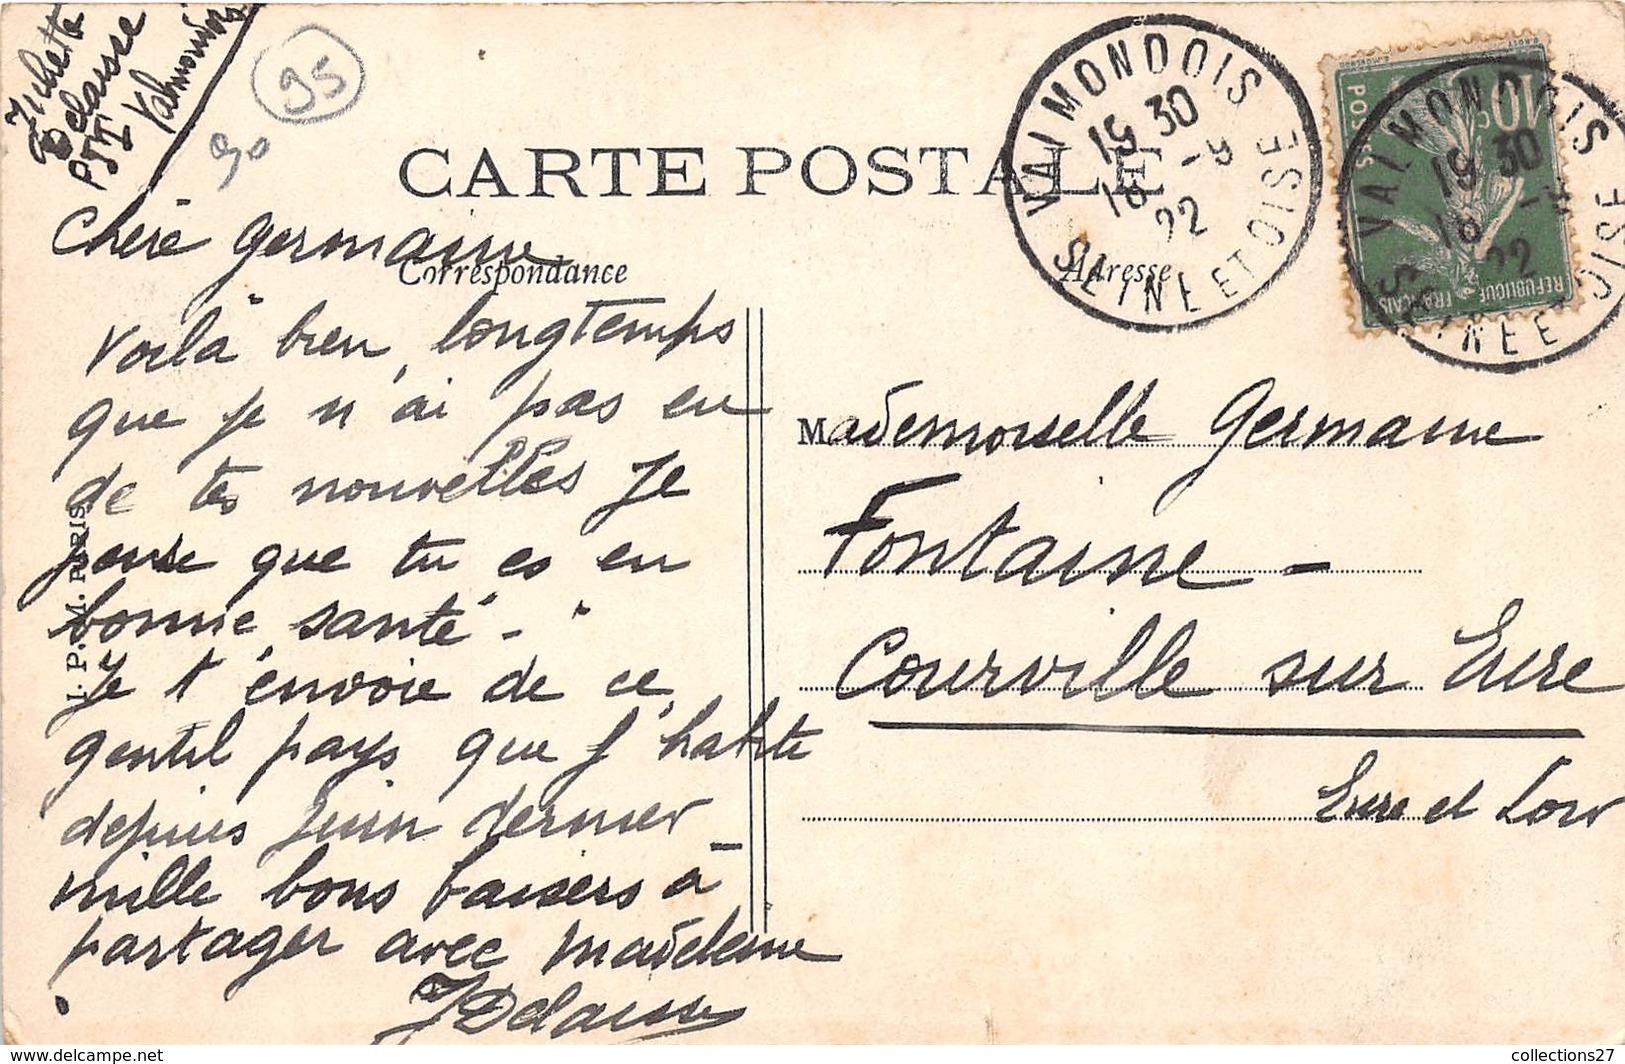 Delaisse
PTT
Valmondois
95
90
CARTE POSTALE
Correspondance
Adresse
VALMONDOIS
19 30
18 -9
22
SEINE ET OISE
VALMONDOIS
19 30
18
22
SEINE ET OISE
10c
POSTES
REPUBLIQUE
FRANCAISE
Chère Germaine
Voilà bien longtemps
que je n'ai pas eu
de tes nouvelles Je
pense que tu es en
bonne santé -
Je t'envoie de ce
gentil pays que j'habite
depuis Juin dernier _
mille bons baisers à
partager avec Madeleine
JDelaisse
Mademoiselle Germaine
Fontaine -
Courville sur Eure
Eure et Loir
I. P. M. PARIS
www.delcampe.net
collections27